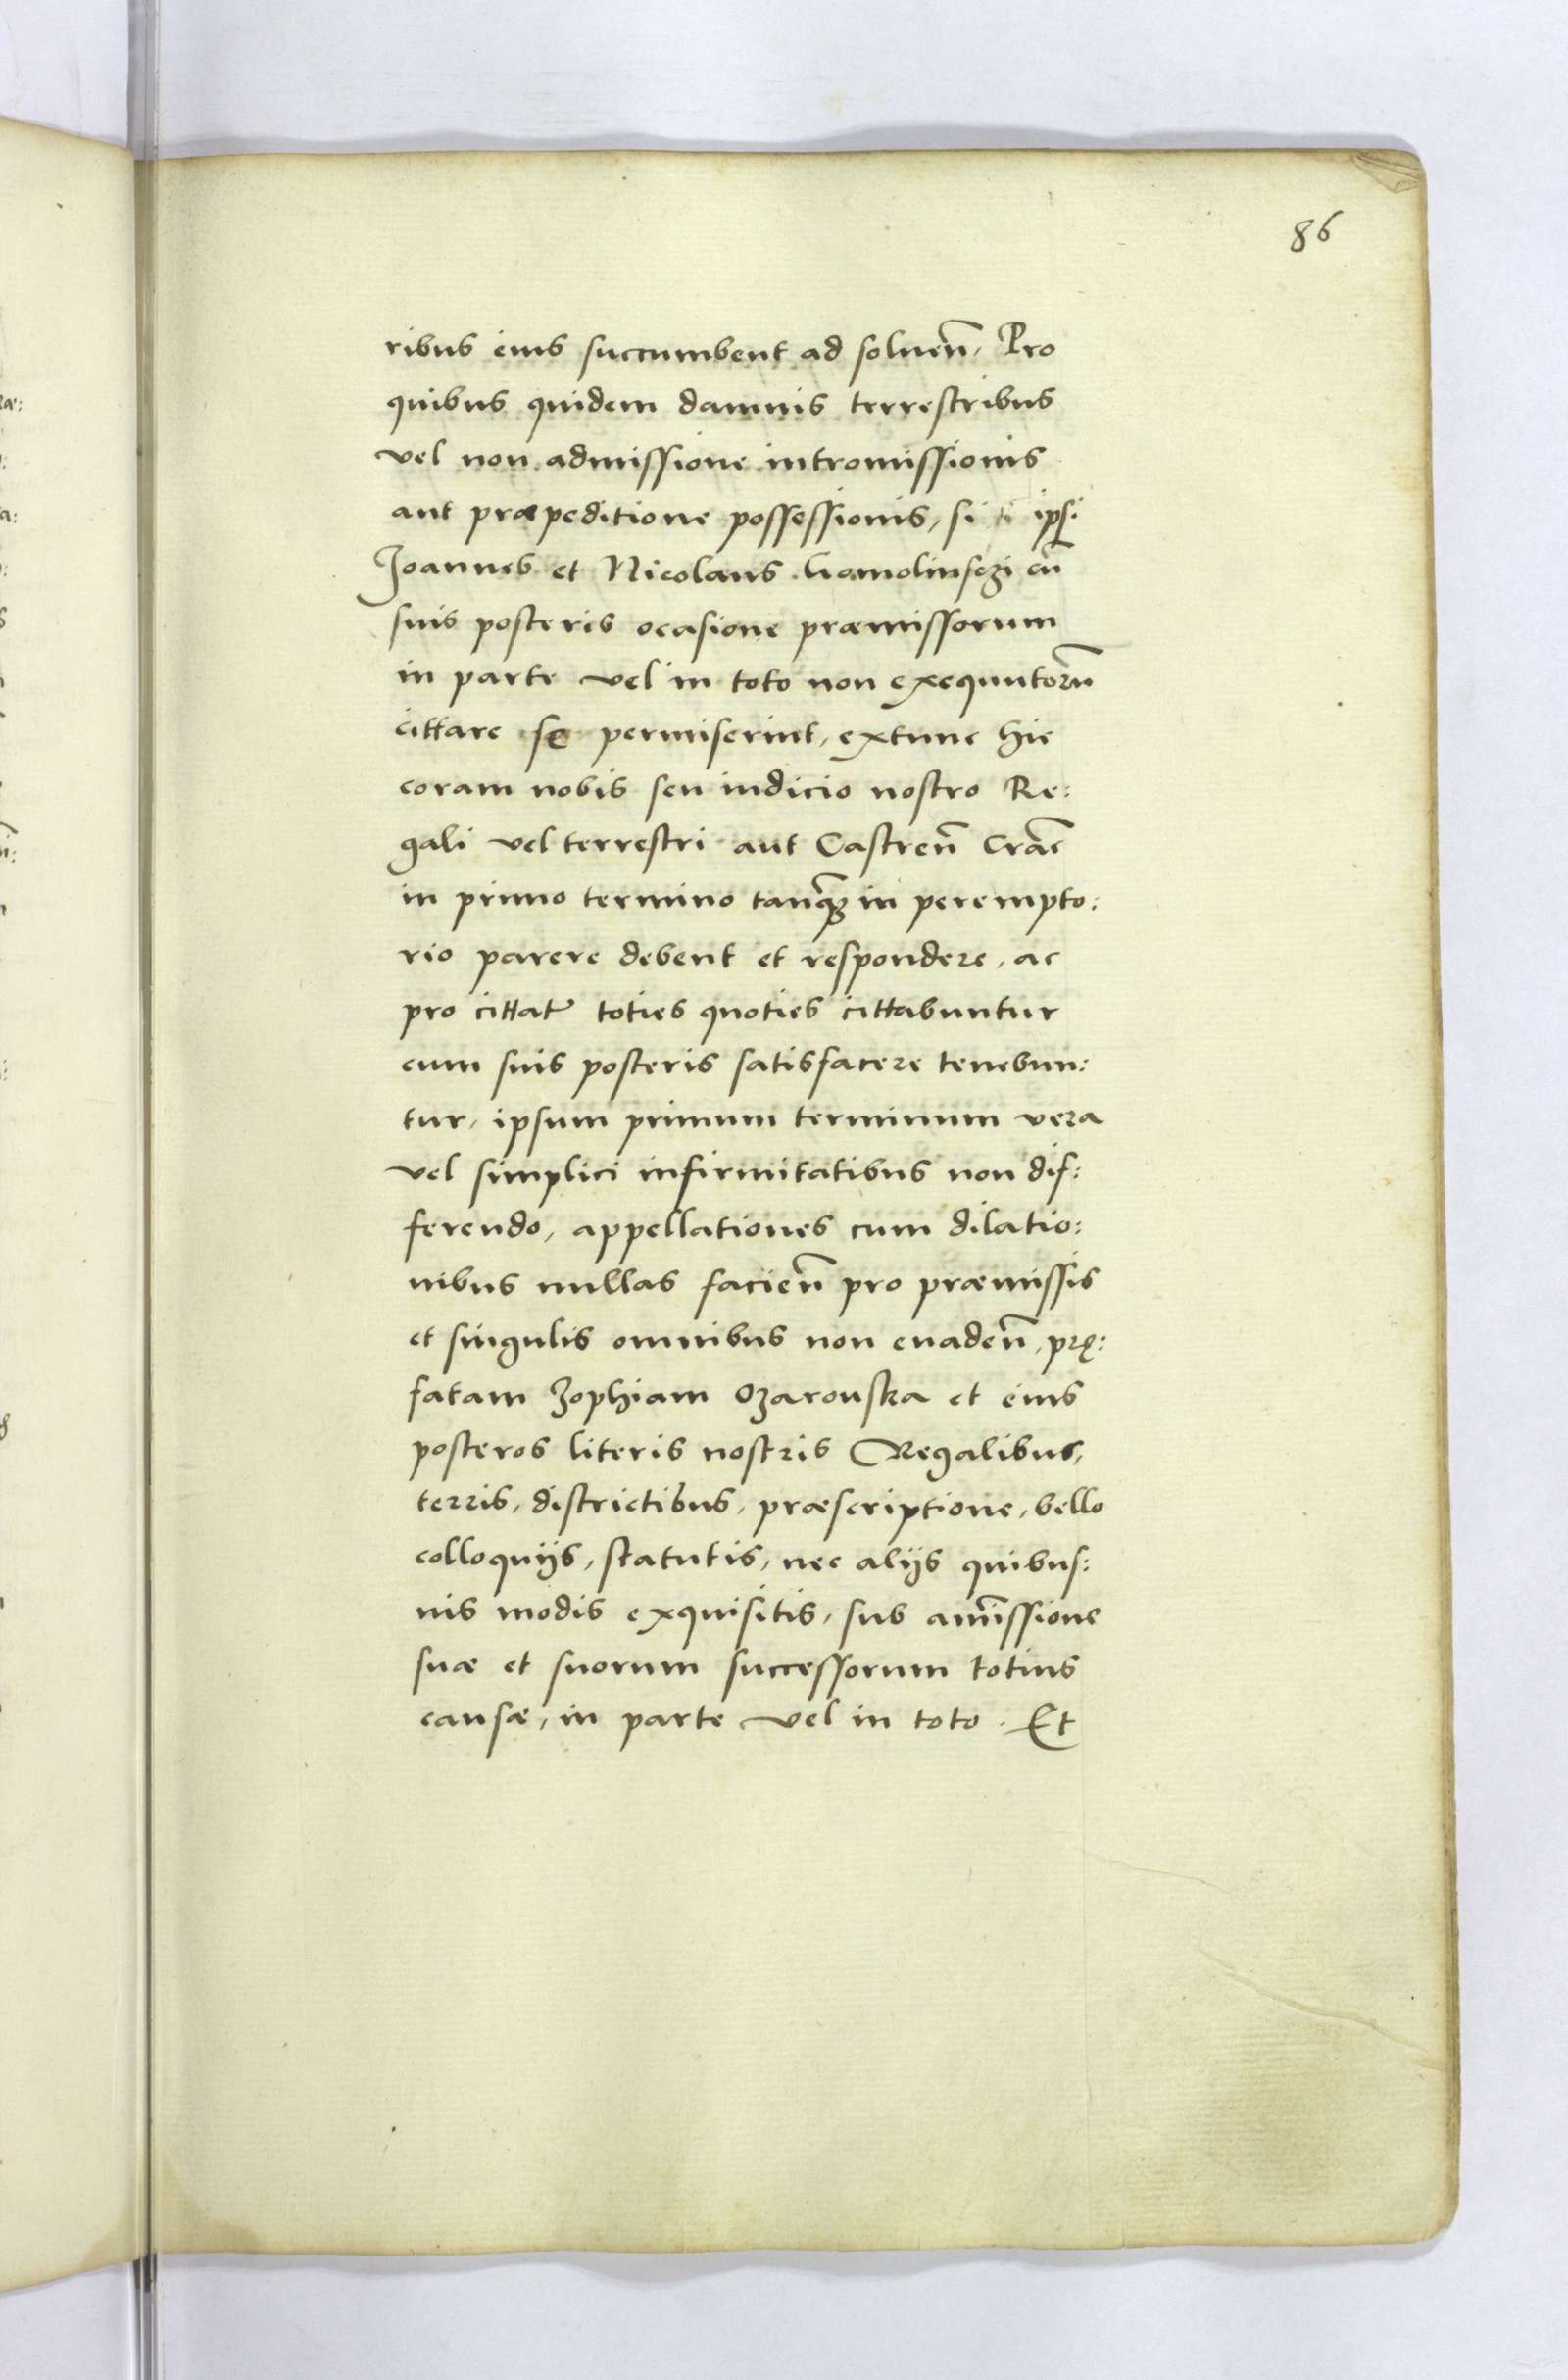 86
ribus eius succumbent ad soluen̄, Pro
quibus quidem damnis terrestribus
vel non admissione intromissionis
aut præpeditione possessionis, si ipsi
Joannes et Nicolaus cū
suis posteris ocasione præmissorum
in parte vel in toto non exequutorū
cittare se permiserint, extunc hic
coram nobis seu iudicio nostro Re:
gali vel terrestri aut Castren̄ Crac̄
in primo termino tanq̄ in perempto:
rio parere debent et respondere, ac
pro cittat̄ toties quoties cittabuntur
cum suis posteris satisfacere tenebun:
tur, ipsum primum terminum vera
vel simplici infirmitatibus non dif:
ferendo, appellationes cum dilatio:
nibus nullas facien̄ pro præmissis
et singulis omnibus non euaden̄, prę:
fatam Zophiam Ozarouska et eius
posteros literis nostris Regalibus,
terris, districtibus, præscriptione, bello
colloquijs, statutis, nec alijs quibus:
uis modis exquisitis, sub amīssione
suæ et suorum successorum totius
causæ, in parte vel in toto. Et